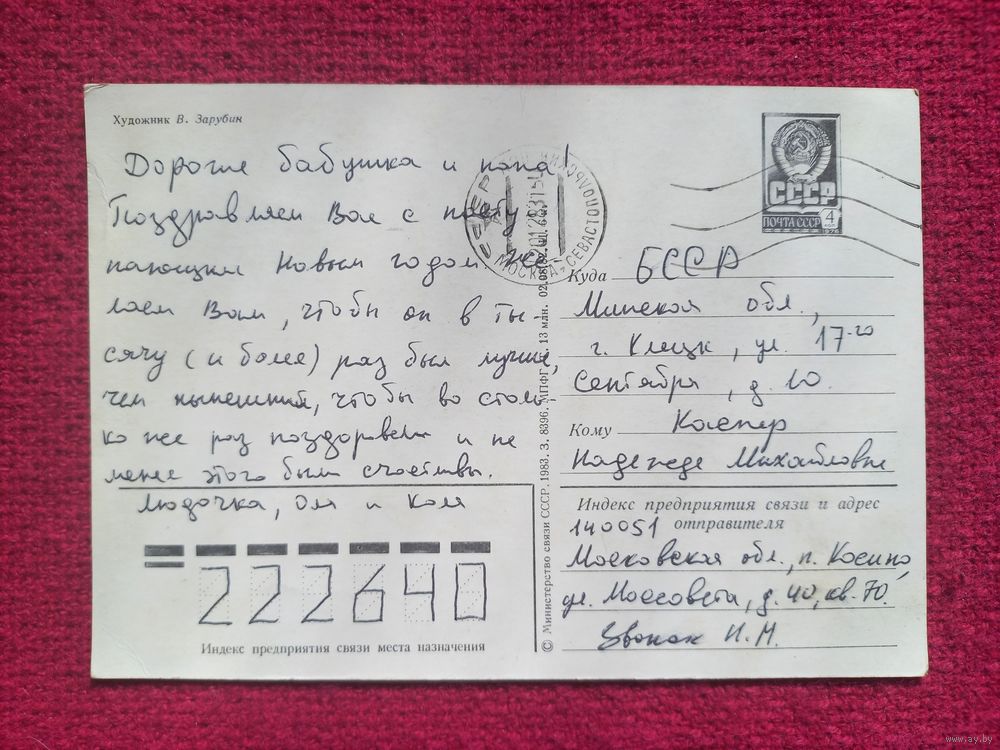 Художник В. Зарубин
Дорогие бабушка и папа!
Поздравляем Вас с насту
пающим Новым годом. Же-
лаем Вам, чтобы он в ты-
сячу (и более) раз был лучше,
чем нынешний, чтобы во столь-
ко же раз поздоровели и не
менее этого были счастливы.
Людочка, Оля и Коля
222640
Индекс предприятия связи места назначения
© Министерство связи СССР. 1983. З. 8396. МПФГ. 13 млн. 02.08.83. Ц. 6 к.
СССР
ПОЧТА СССР 4
1978
МОСКВА
Куда БССР
Минская обл.,
г. Клецк, ул. 17-го
Сентября, д. 10.
Кому Каспер
Надежде Михайловне
Индекс предприятия связи и адрес
140051 отправителя
Московская обл., п. Косино,
ул. Моссовета, д. 40, кв. 70.
Звонак Н. М.
www.ay.by